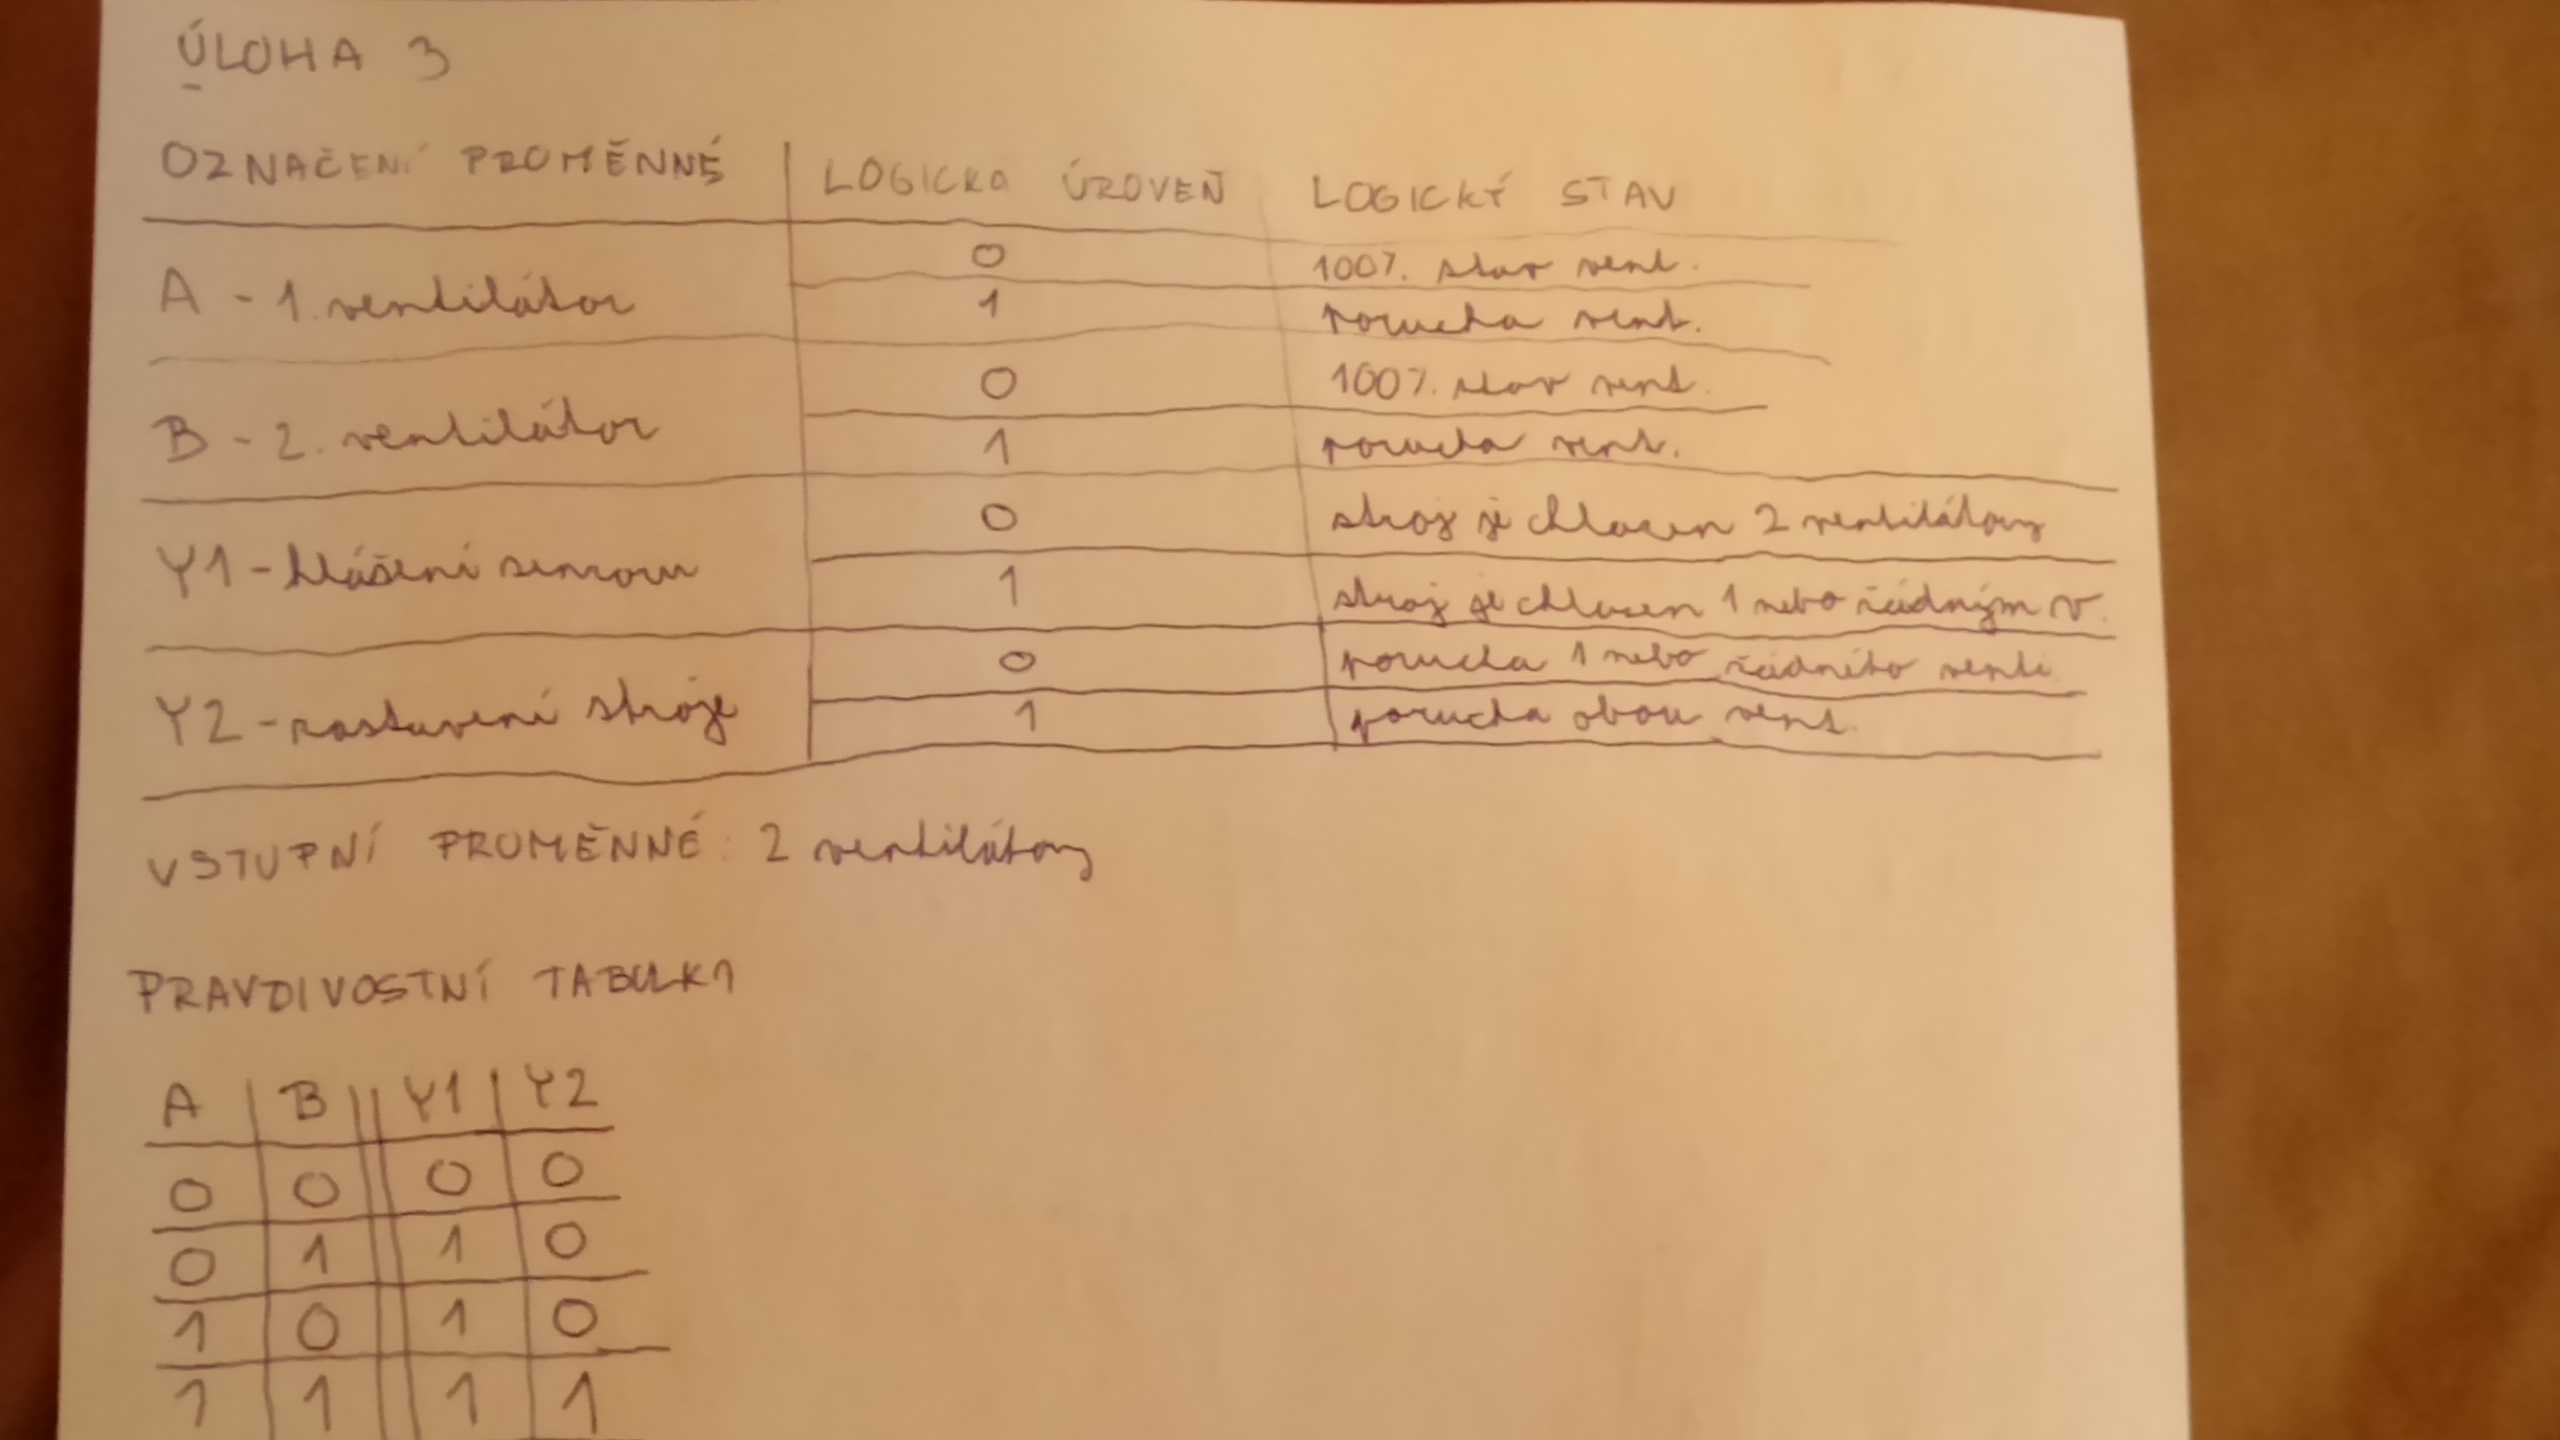 ÚLOHA 3
OZNAČENÍ PROMĚNNÉ LOGICKA ÚROVEŇ LOGICKÝ STAV
0 100%. stav vent.
A - 1. ventilátor
1 porucha vent.
0 100%. stav vent.
B - 2. ventilátor
1 porucha vent.
0 stroj je chlazen 2 ventilátory
Y1 - hlášení senzoru
1 stroj je chlazen 1 nebo žádným v.
0 porucha 1 nebo žádného venti
Y2 - zastavení stroje
1 porucha obou vent.
VSTUPNÍ PROMĚNNÉ: 2 ventilátory
PRAVDIVOSTNÍ TABULKA
A B Y1 Y2
0 0 0 0
0 1 1 0
1 0 1 0
1 1 1 1